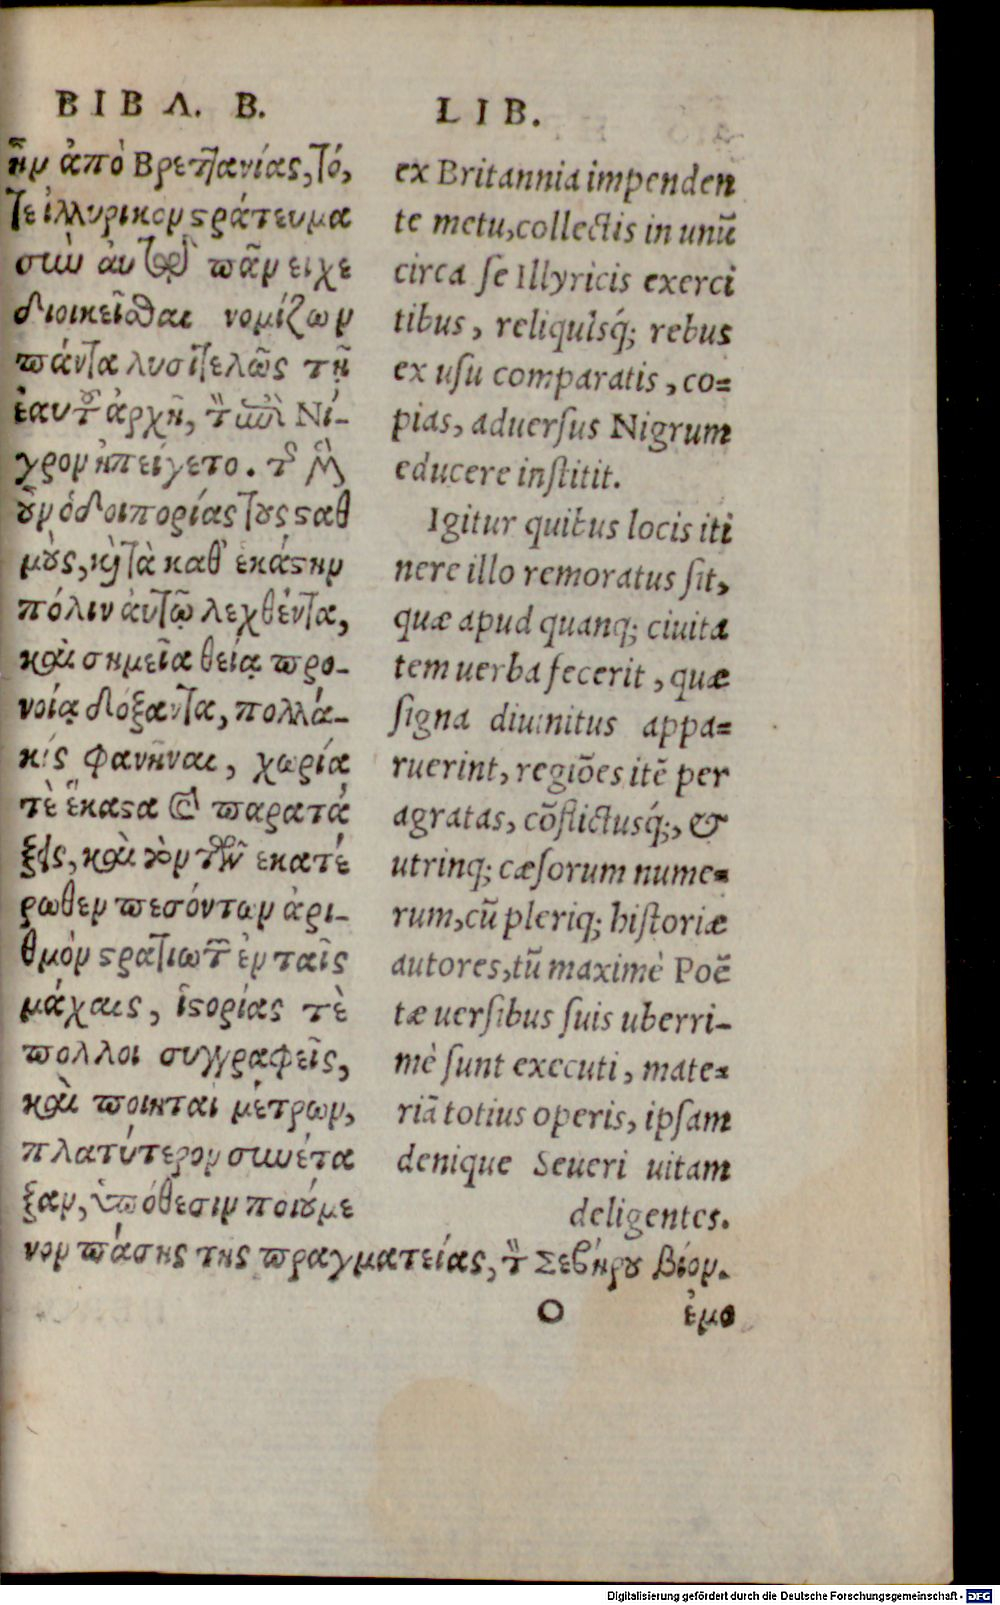 ΒΙΒΛ. Β.
ῆν ἀπὸ Βρετ]ανίας, τό,
τε ἰλλυρικὸν στράτευμα
σὺν αὐτῷ πᾶν εἶχε
διοικεῖσθαι νομίζων
πάντα λυσιτελῶς τῇ
ἑαυτοῦ ἀρχῇ, ἐπὶ τὸν Νί-
γρον ἠπείγετο. τῆς μὲν
οὖν ὁδοιπορίας τοὺς σταθ
μοὺς, καὶ τὰ καθ' ἑκάστην
πόλιν αὐτῷ λεχθέντα,
καὶ σημεῖα θείᾳ προ-
νοίᾳ δόξαντα, πολλά-
κις φανῆναι, χωρία
τὲ ἕκαστα καὶ παρατά
ξεις, καὶ τὸν τῶν ἑκατέ
ρωθεν πεσόντων ἀρι-
θμὸν στρατιωτῶν ἐν ταῖς
μάχαις, ἱστορίας τὲ
πολλοὶ συγγραφεῖς,
καὶ ποιηταὶ μέτρων,
πλατύτερον συνέτα
ξαν, ὑπόθεσιν ποιούμε
νοι πάσης τῆς πραγματείας, τὸν Σεβήρου βίον.
LIB.
ex Britannia impenden
te metu, collectis in unũ
circa se Illyricis exerci
tibus, reliquisq́; rebus
ex usu comparatis, co=
pias, aduersus Nigrum
educere institit.
Igitur quibus locis iti
nere illo remoratus sit,
quæ apud quanq; ciuita
tem uerba fecerit, quæ
signa diuinitus appa=
ruerint, regiões itẽ per
agratas, cõflictusq́;, &
utrinq; cæsorum nume=
rum, cũ pleriq; historiæ
autores, tũ maximè Poë
tæ uersibus suis uberri-
mè sunt executi, mate=
riã totius operis, ipsam
denique Seueri uitam
deligentes.
O ἐμο
Digitalisierung gefördert durch die Deutsche Forschungsgemeinschaft - DFG